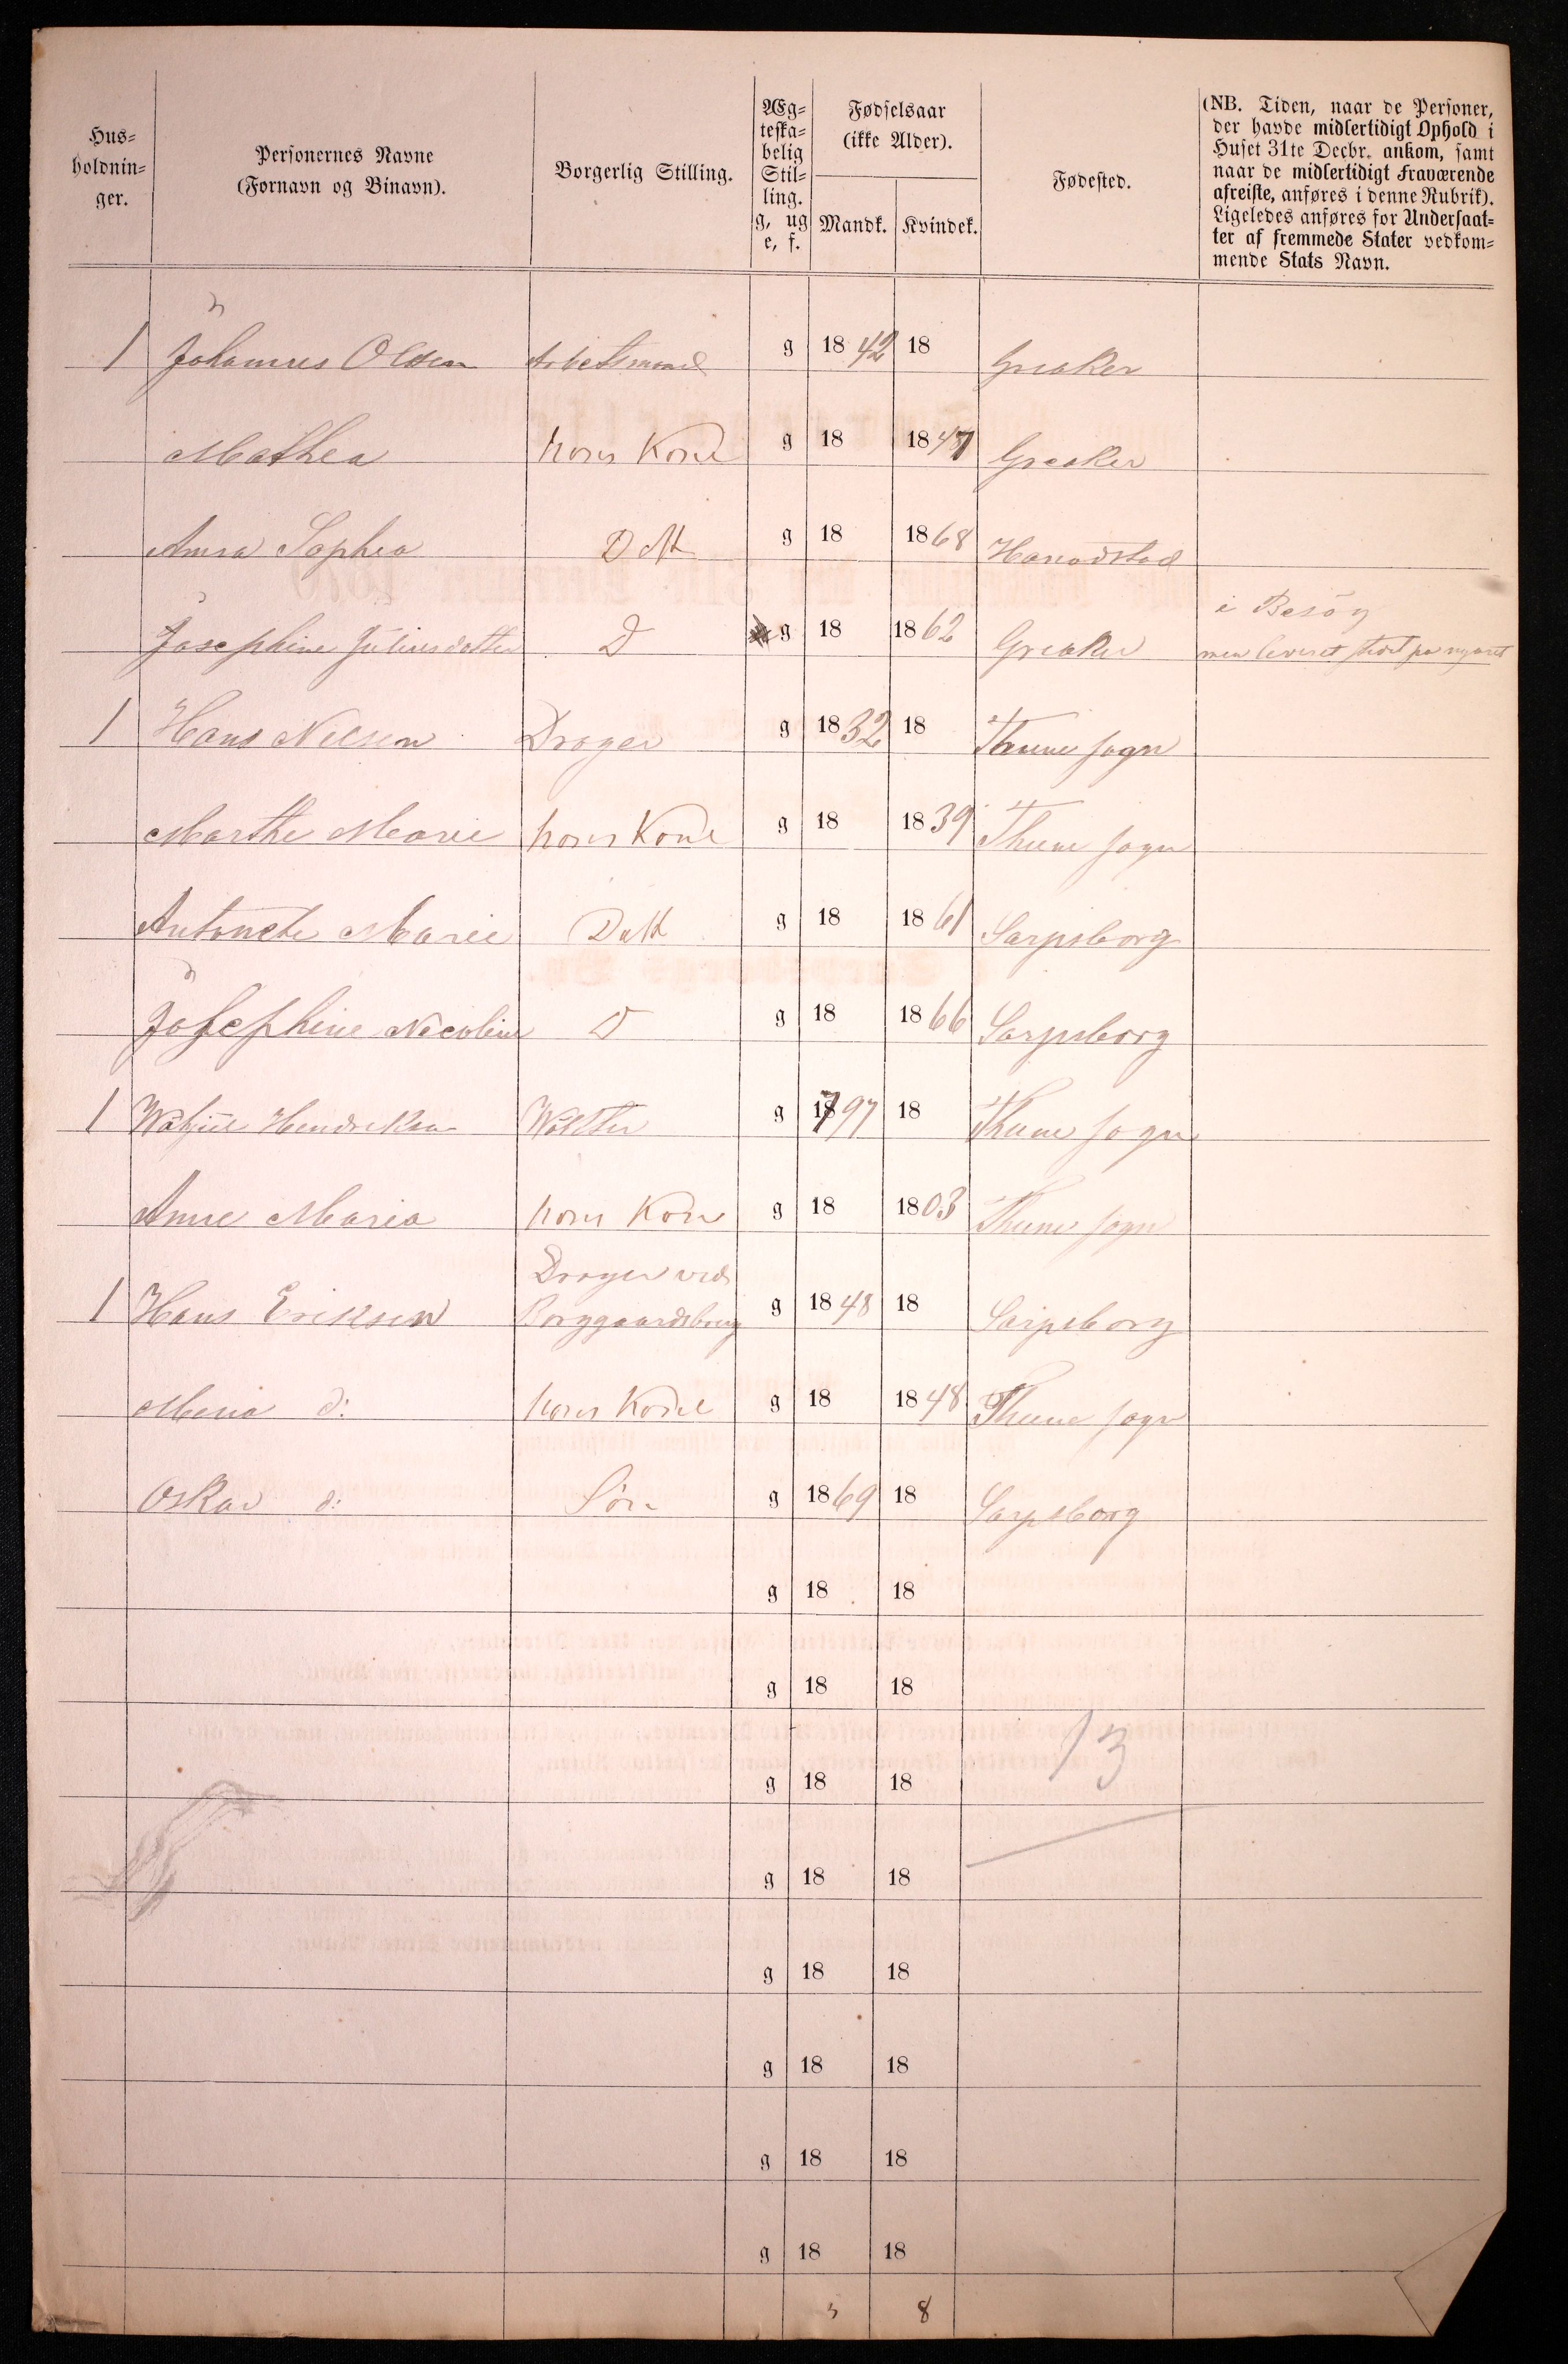 Hus-
holdnin-
ger.
Personernes Navne
(Fornavn og Binavn).
Borgerlig Stilling.
Æg-
teska-
belig
Stil-
ling.
g, ug
e, f.
Fødselsaar
(ikke Alder).
Mandk. Kvindek.
Fødested.
(NB. Tiden, naar de Personer,
der havde midlertidigt Ophold i
Huset 31te Decbr. ankom, samt
naar de midlertidigt Fraværende
afreiste, anføres i denne Rubrik).
Ligeledes anføres for Undersaat-
ter af fremmede Stater vedkom-
mende Stats Navn.
1 Johannes Olsen Arbetsmand g 1842 18 Greaker
Mathea hans Kone g 18 1847 Greaker
Anna Sophia Datt g 18 1868
i Besög
Josephine Juliusdatter D g 18 1862 Greaker
1 Hans Nilsen Drager g 1832 18 Thune sogn
Marthe Marie hans Kone g 18 1839 Thune sogn
Antonete Marie Datt g 18 1861 Sarpsborg
Josephine Nicoline D g 18 1866 Sarpsborg
1 Hendriksen g 1797 18 Thune sogn
Anne Maria hans Kone g 18 1803 Thune sogn
Drager ved
1 Hans Eriksen Borggaardsbrug g 1848 18 Sarpsborg
Maria d: hans Kone g 18 1848 Thune sogn
Oskar d: Sön g 1869 18 Sarpsborg
g 18 18
g 18 18
13
g 18 18
g 18 18
g 18 18
g 18 18
g 18 18
g 18 18
5 8